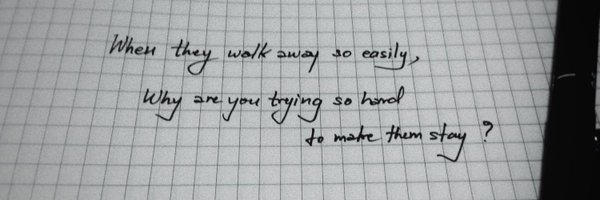 When they walk away so easily,
Why are you trying so hard
to make them stay ?